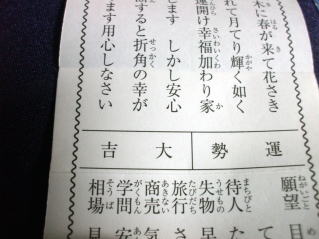 木に春が来て花さき
れて月てり輝く如く
運開け幸福加わり家
じます しかし安心
すると折角の幸が
ます用心しなさい
運勢 大吉
願望
待人
失物 早
旅行 さ
商売 気
学問 安
相場 見